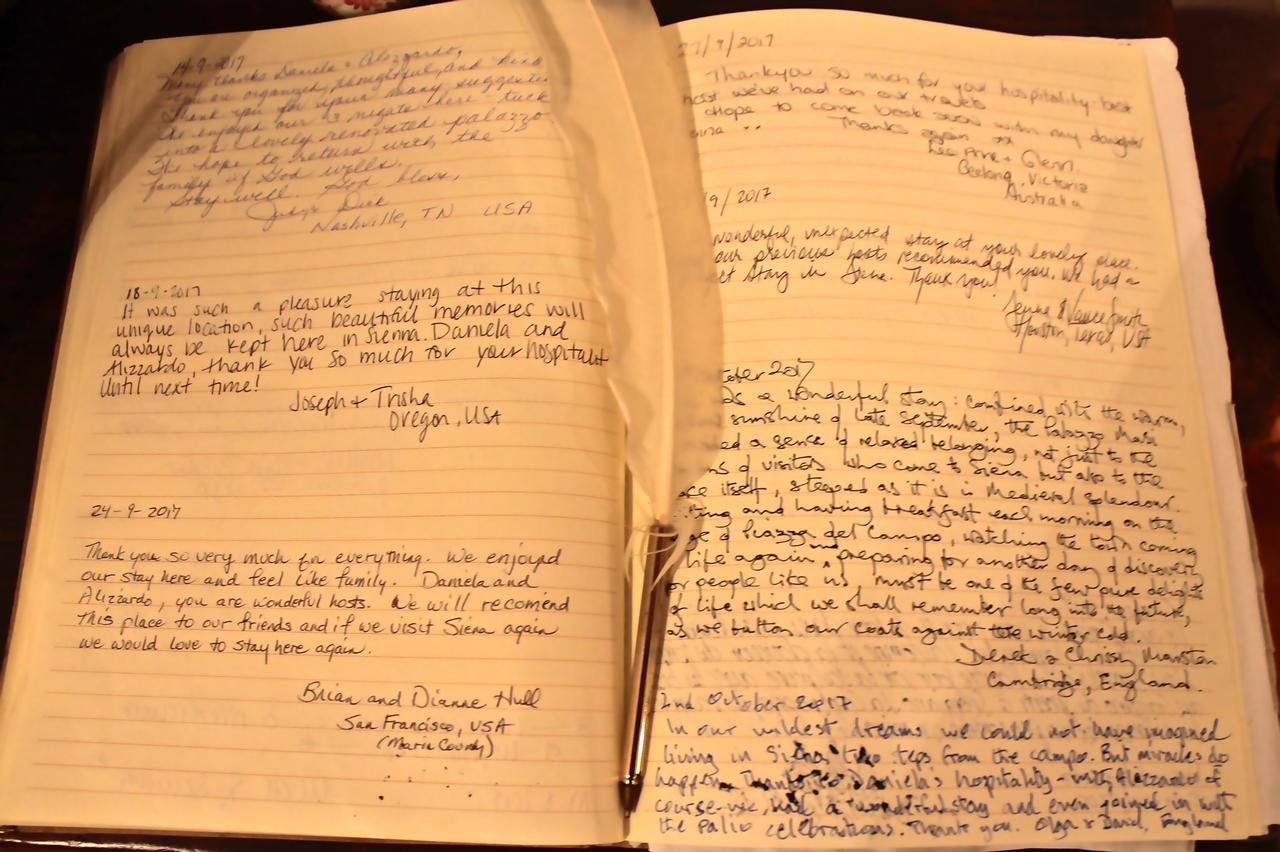 14-9-2017
Many thanks Daniela + Alizzardo,
You are organized, thoughtful, and kind
Thank you for your many suggestio
We enjoyed our 3 nights here - tuck
into a lovely renovated palazzo
We hope to return with the
family if God wills.
Stay well. God bless,
Judy + Dick
Nashville, TN USA
18-9-2017
It was such a pleasure staying at this
unique location, such beautiful memories will
always be kept here in Sienna. Daniela and
Alizzardo, thank you so much for your hospitalit
Until next time!
Joseph + Trisha
Oregon, USA
24-9-2017
Thank you so very much for everything. We enjoyed
our stay here and feel like family. Daniela and
Alizzardo, you are wonderful hosts. We will recomend
this place to our friends and if we visit Siena again
we would love to stay here again.
Brian and Dianne Hull
San Francisco, USA
(Marin County)
27/9/2017
Thankyou so much for your hospitality: best
host we've had on our travels
Hope to come back soon with my daughter
Thanks again xx
Lee Anne + Glenn.
Geelong, Victoria
Australia
/9/2017
wonderful, unexpected stay at your lovely place.
our previous hosts recommended you. We had a
ct stay in Siena. Thank you!
Vance Smith
Houston, Texas, USA
tober 2017
as a wonderful stay: combined with the warm,
sunshine of late September, the Palazzo Masi
ed a sense of relaxed belonging, not just to the
ns of visitors who come to Siena but also to the
ace itself, steeped as it is in Medieval splendour.
ting and having breakfast each morning on the
ge of Piazza del Campo, watching the town coming
life again, preparing for another day of discovery
or people like us, must be one of the few pure delights
of life which we shall remember long into the future,
as we button our coats against the winter cold.
Derek & Chrissy Marston
Cambridge, England.
2nd October 2017
In our wildest dreams we could not have imagined
living in Siena two steps from the campo. But miracles do
happen. Daniela's hospitality - with Alizzardo of
course - we had a wonderful stay and even joined in with
the palio celebrations. Thank you. Olga & David, England